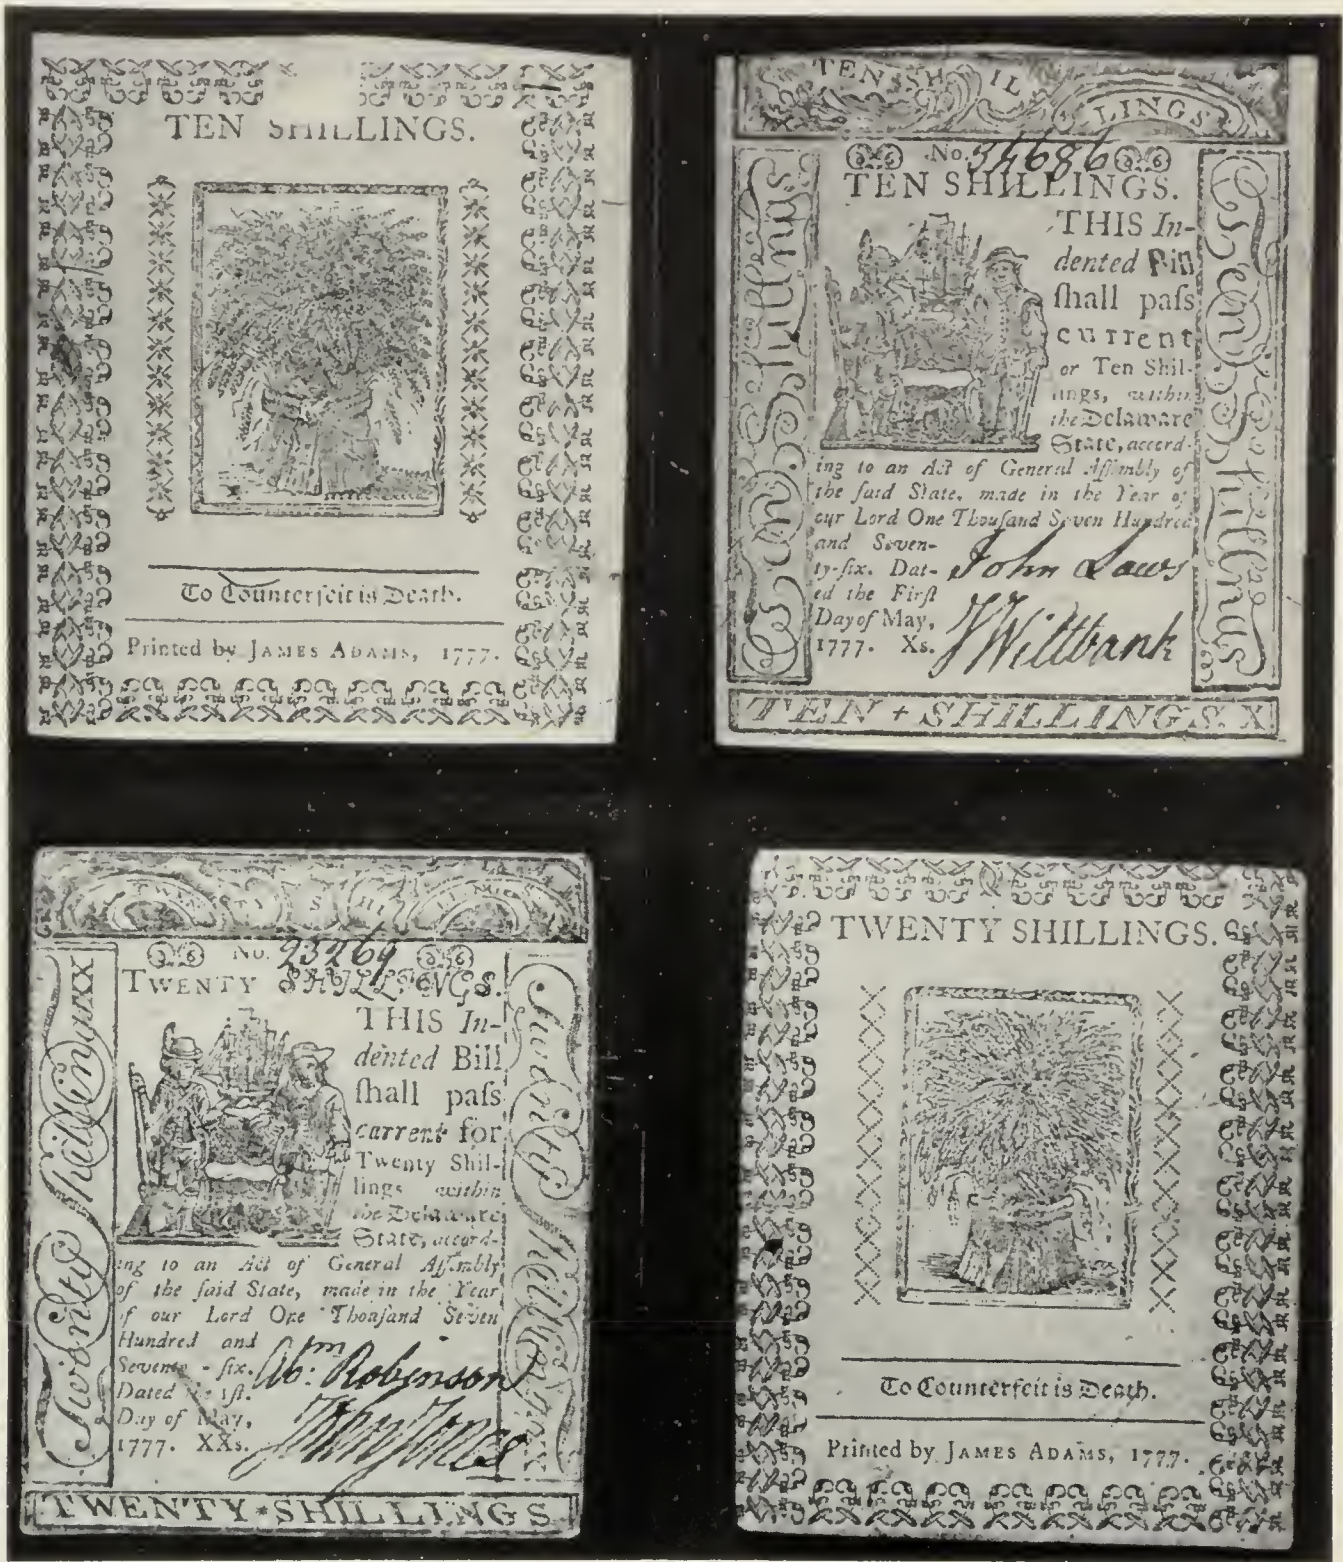 TEN SHILLINGS.
To Counterfeit is Death.
Printed by JAMES ADAMS, 1777.
TEN SHIL
LINGS
No. 34686
TEN SHILLINGS.
Ten Shillings
Ten Shillings
THIS In-
dented Bill
ſhall paſs
current
or Ten Shil-
lings, within
the Delaware
State, accord-
ing to an Act of General Aſſembly of
the ſaid State, made in the Year of
our Lord One Thouſand Seven Hundred
and Seven-
ty-ſix. Dat-
ed the Firſt
Day of May,
1777. Xs.
John Laws
J Wiltbank
TEN + SHILLINGS. X
TWEN TY S HI LLINGS
No. 23269
TWENTY SHILLINGS.
Twenty Shilling XX
Twenty Shillings
THIS In-
dented Bill
ſhall paſs
current for
Twenty Shil-
lings within
the Delaware
State, accord-
ing to an Act of General Aſſembly
of the ſaid State, made in the Year
of our Lord One Thouſand Seven
Hundred and
Seventy-ſix.
Dated 1ſt.
Day of May,
1777. XXs.
Abm. Robinson
John Jones
TWENTY * SHILLINGS
TWENTY SHILLINGS.
To Counterfeit is Death.
Printed by JAMES ADAMS, 1777.